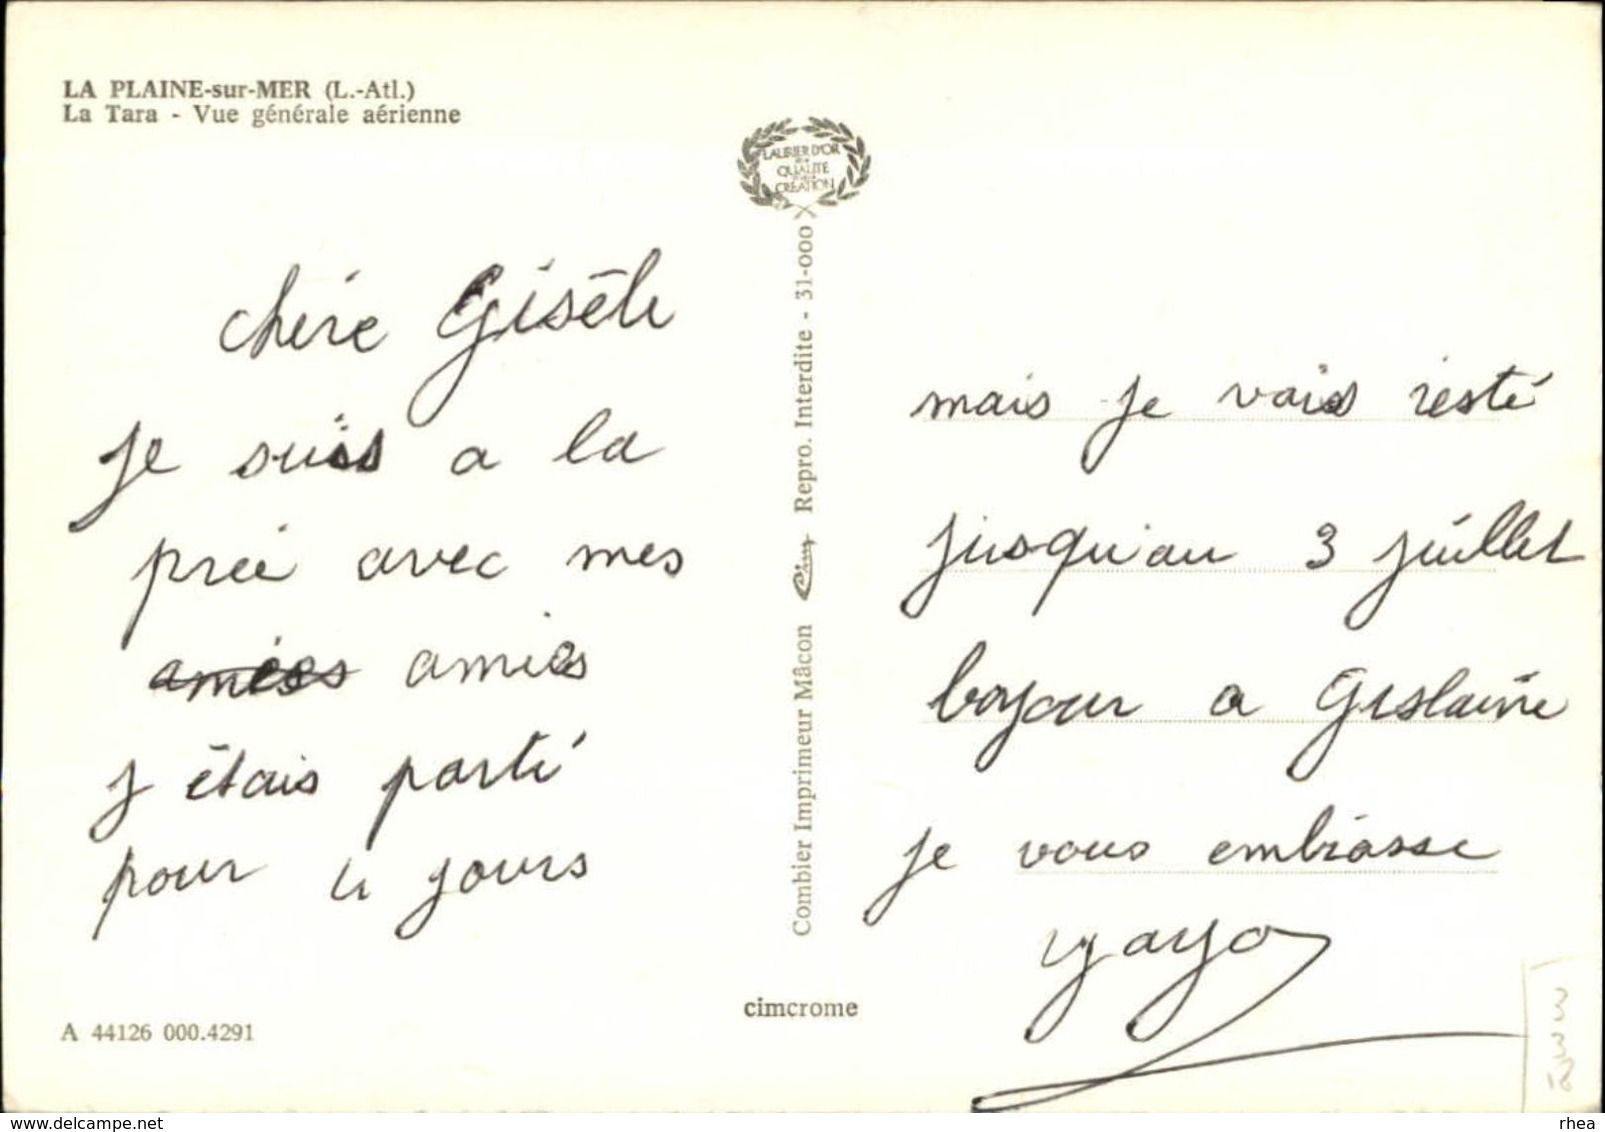 LA PLAINE-sur-MER (L.-Atl.)
La Tara - Vue générale aérienne
LAURIER D'OR
QUALITE
CREATION
chére Gisèle
je suis a la
preé avec mes
amies amies
j étais parté
pour 4 jours
A 44126 000.4291
Combier Imprimeur Mâcon Cim Repro. Interdite - 31-000
cimcrome
mais je vais resté
jusqu'au 3 juillet
bojour a Gislaine
je vous embrasse
yayo
www.delcampe.net
rhea